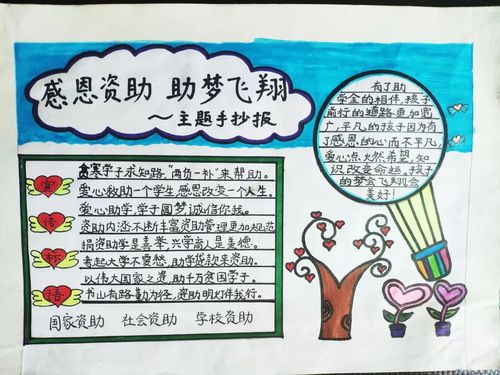 感恩资助 助梦飞翔
～主题手抄报
有了助
学金的相伴，孩子
前行的道路更加宽
广，平凡的孩子因为有
了感恩的心而不平凡，
爱心点燃希望，知
识改变命运。孩子
的梦会飞翔会
美好！
宣
传
标
语
贫寒学子求知路，"两负一补"来帮助。
爱心救助一个学生，感恩改变一个人生。
爱心助学，学子圆梦，诚信你我。
资助内涵不断丰富，资助管理更加规范
捐资助学是善举，兴学育人是美德。
考起大学不要愁，助学贷款来资助。
以伟大国家之资，助千万贫困学子。
书山有路勤为径，资助明灯伴我行。
国家资助 社会资助 学校资助